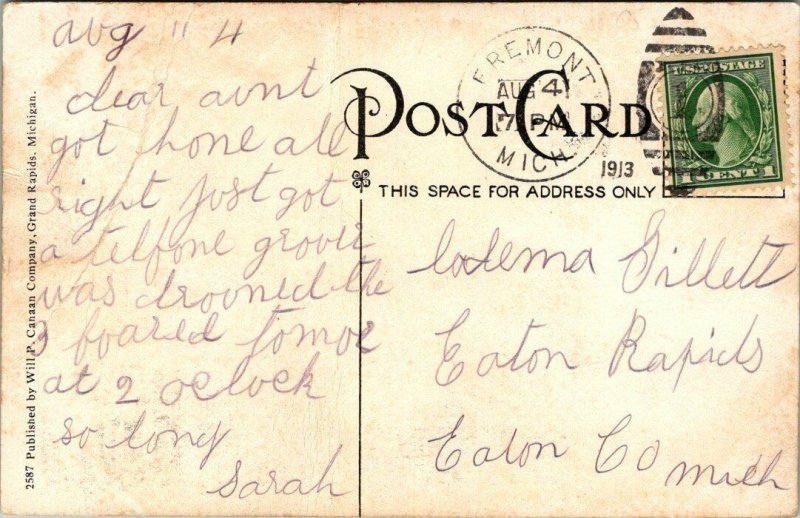 aug 11 4
dear aunt
got hone all
right just got
a telfone grover
was drooned the
3 foared tomor
at 2 oclock
so long
Sarah
2587 Published by Will P. Canaan Company, Grand Rapids, Michigan.
POST CARD
THIS SPACE FOR ADDRESS ONLY
FREMONT
AUG 4
7 PM
1913
MICH.
U.S. POSTAGE
1 CENT 1
Gillett
Eaton Rapids
Eaton Co mich